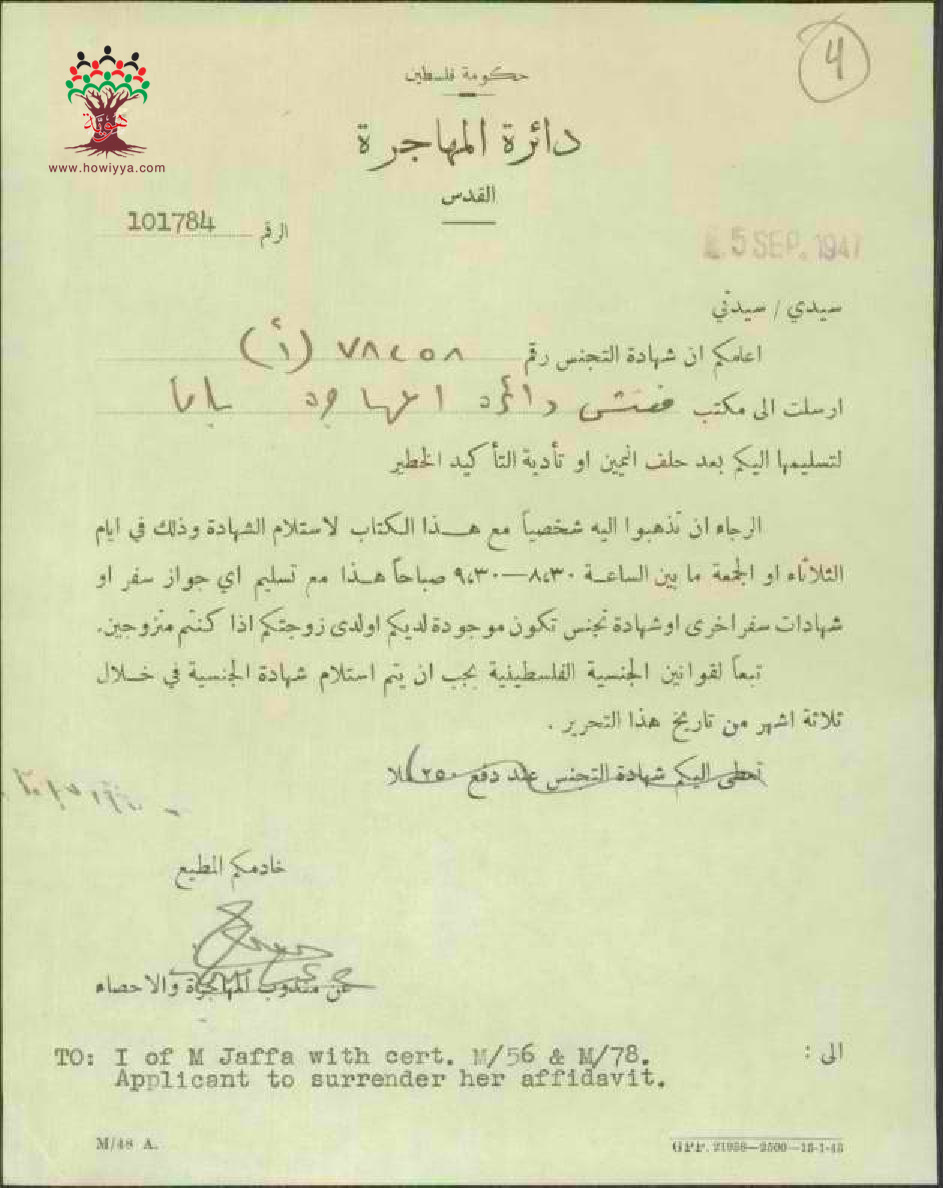 4
هوية
www.howiyya.com
حكومة فلسطين
دائرة المهاجرة
القدس
الرقم 101784
5 SEP. 1947
سيدي / سيدتي
اعلمكم ان شهادة التجنس رقم ٧٨٤٥٨ (أ)
ارسلت الى مكتب مفتش دائرة المهاجرة يافا
لتسليمها اليكم بعد حلف اليمين او تأدية التأكيد الخطير
الرجاء ان تذهبوا اليه شخصياً مع هذا الكتاب لاستلام الشهادة وذلك في ايام
الثلاثاء او الجمعة ما بين الساعة ٨،٣٠—٩،٣٠ صباحاً هذا مع تسليم اي جواز سفر او
شهادات سفر اخرى او شهادة تجنس تكون موجودة لديكم او لدى زوجتكم اذا كنتم متزوجين.
تبعاً لقوانين الجنسية الفلسطينية يجب ان يتم استلام شهادة الجنسية في خلال
ثلاثة اشهر من تاريخ هذا التحرير .
تعطى اليكم شهادة التجنس عند دفع ٢٥٠ ملا
خادمكم المطيع
عن مندوب المهاجرة والاحصاء
الى :
TO: I of M Jaffa with cert. M/56 & M/78.
Applicant to surrender her affidavit.
M/48 A.
GPP. 21958—2500—13-1-45